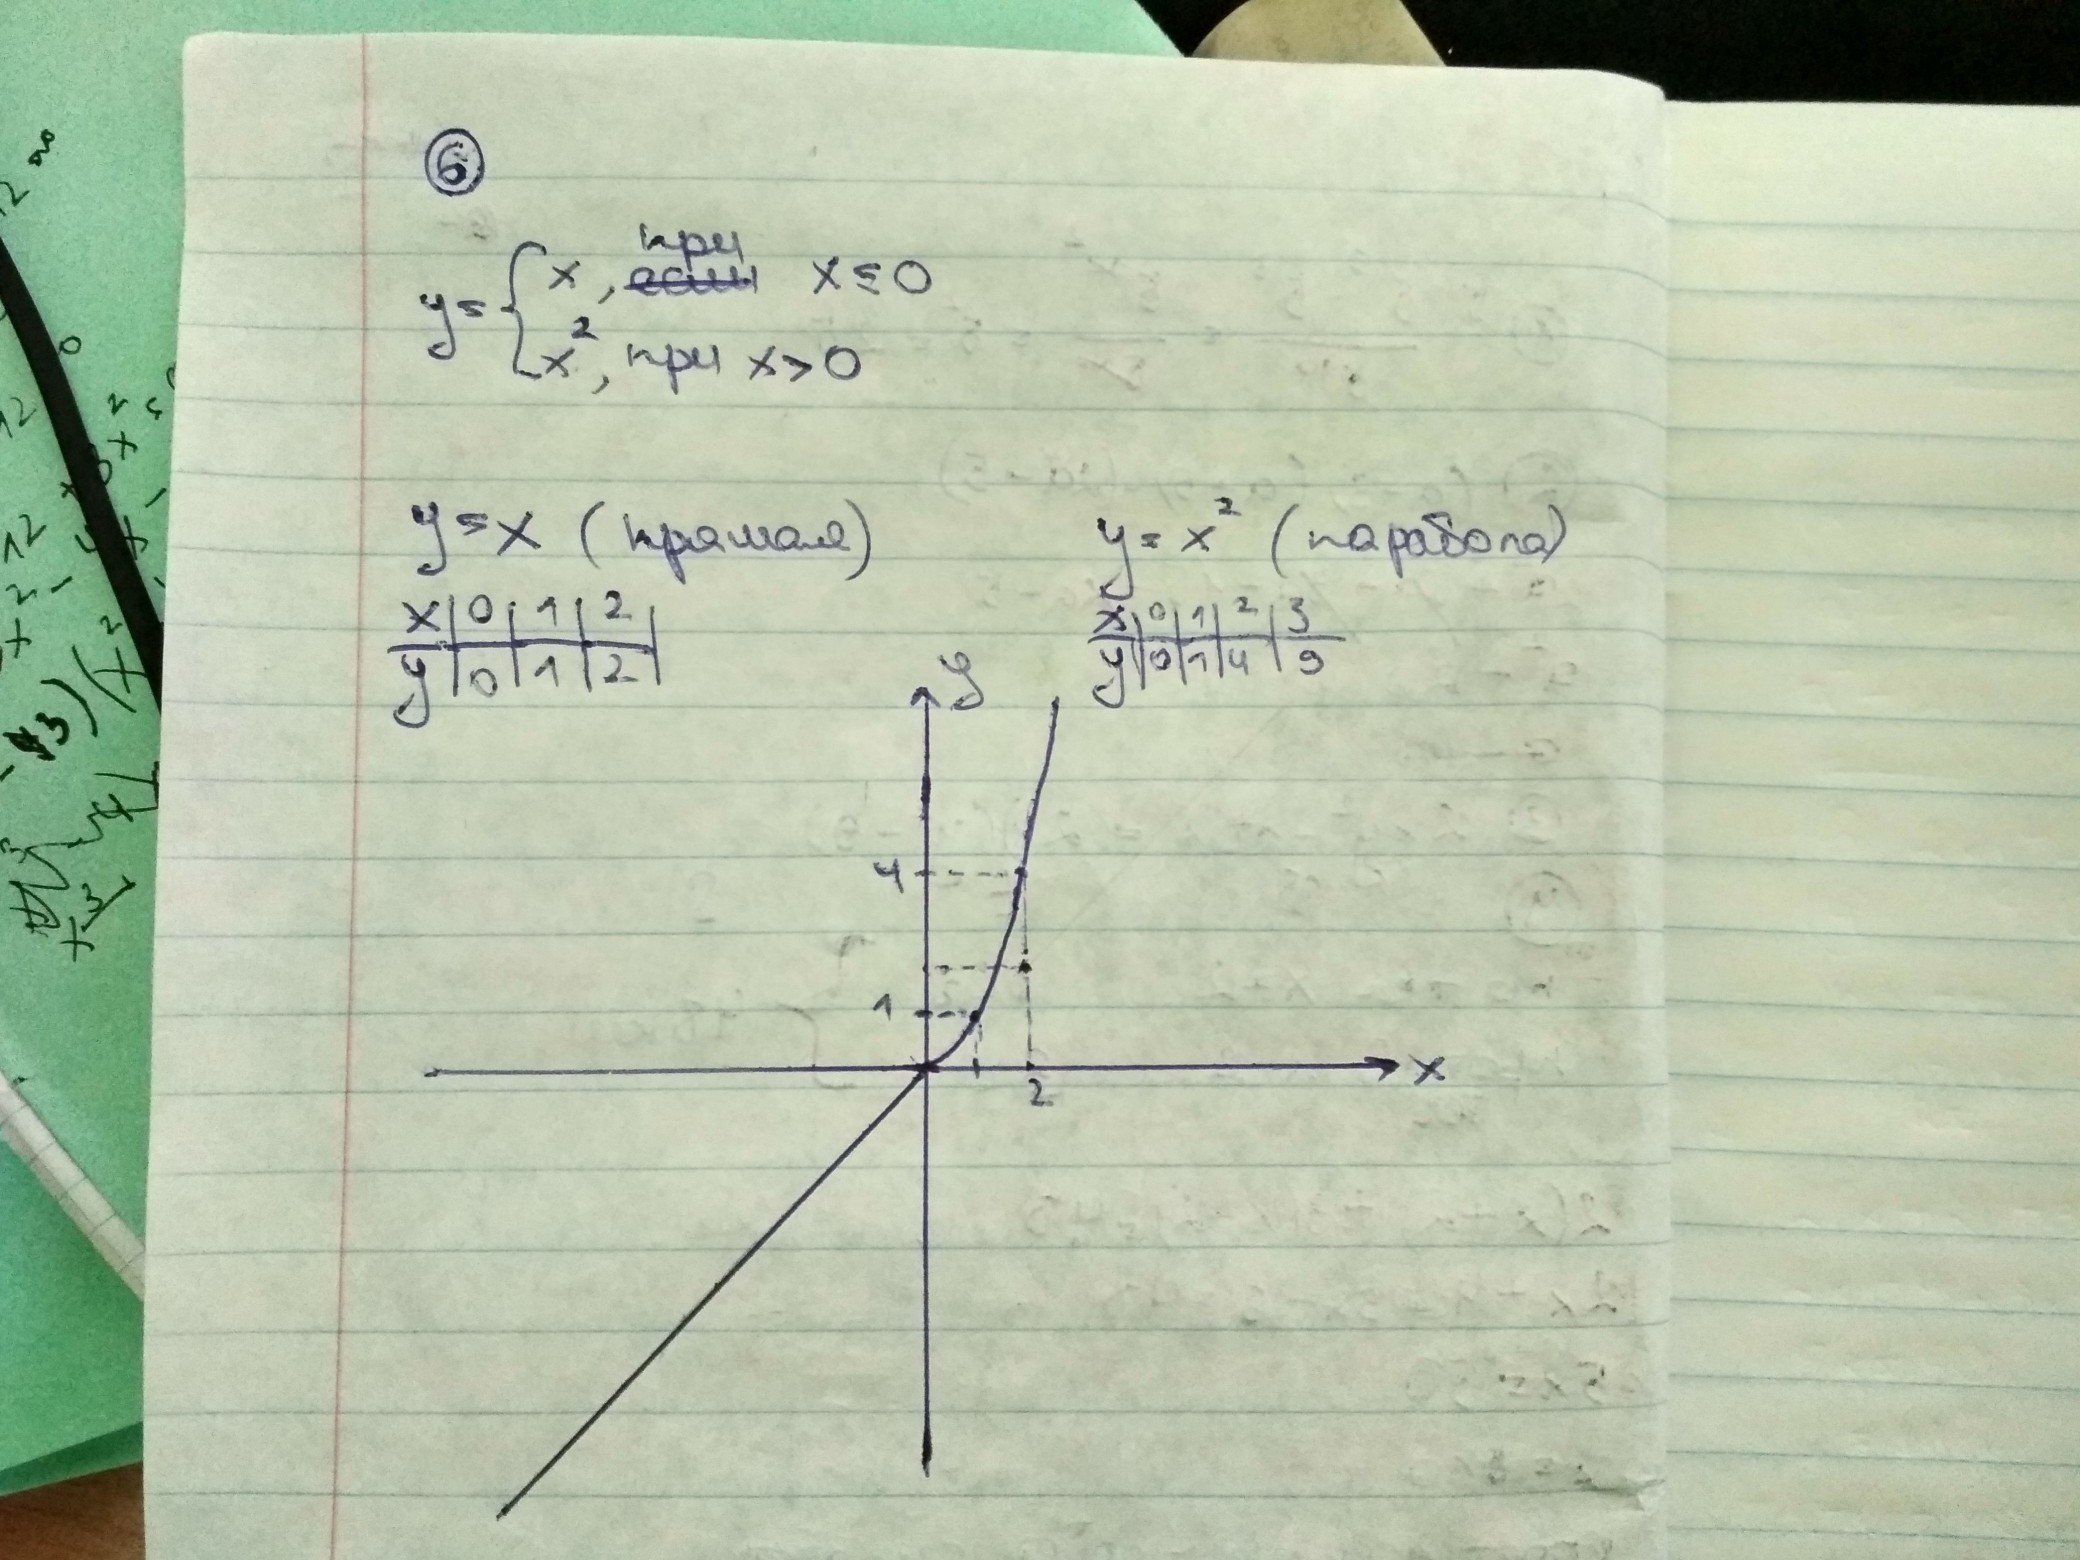 6
y = { x, при если x ≤ 0
x², при x > 0
y = x (прямая)
x | 0 | 1 | 2 |
y | 0 | 1 | 2 |
y = x² (парабола)
x | 0 | 1 | 2 | 3
y | 0 | 1 | 4 | 9
y
4
1
x
2
12
12
12